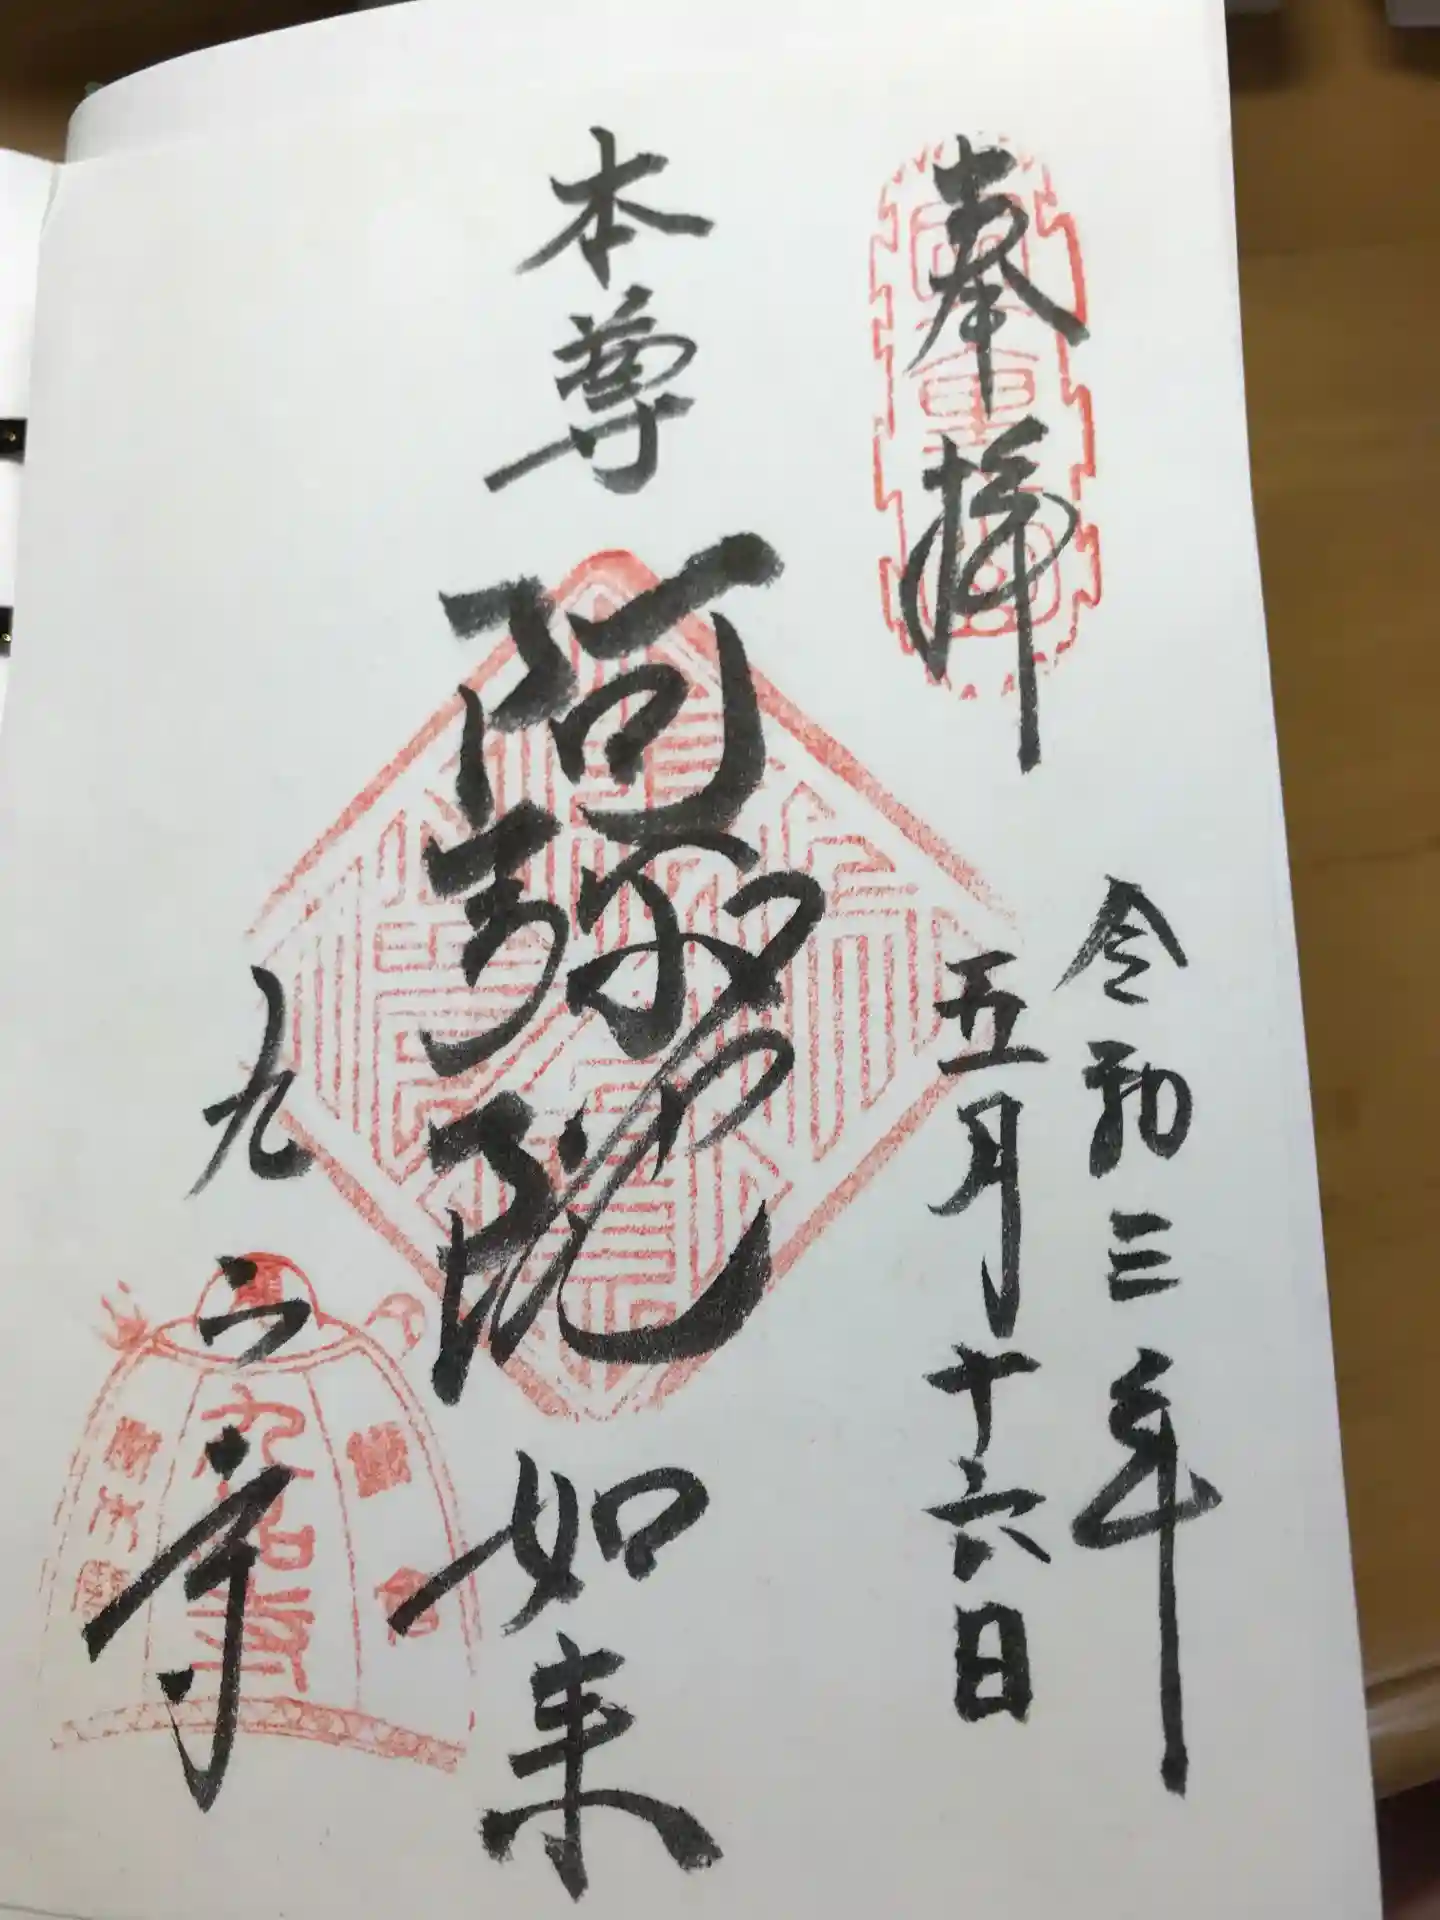 奉拝
令和三年
五月十六日
本尊 阿弥陀如来
九品寺